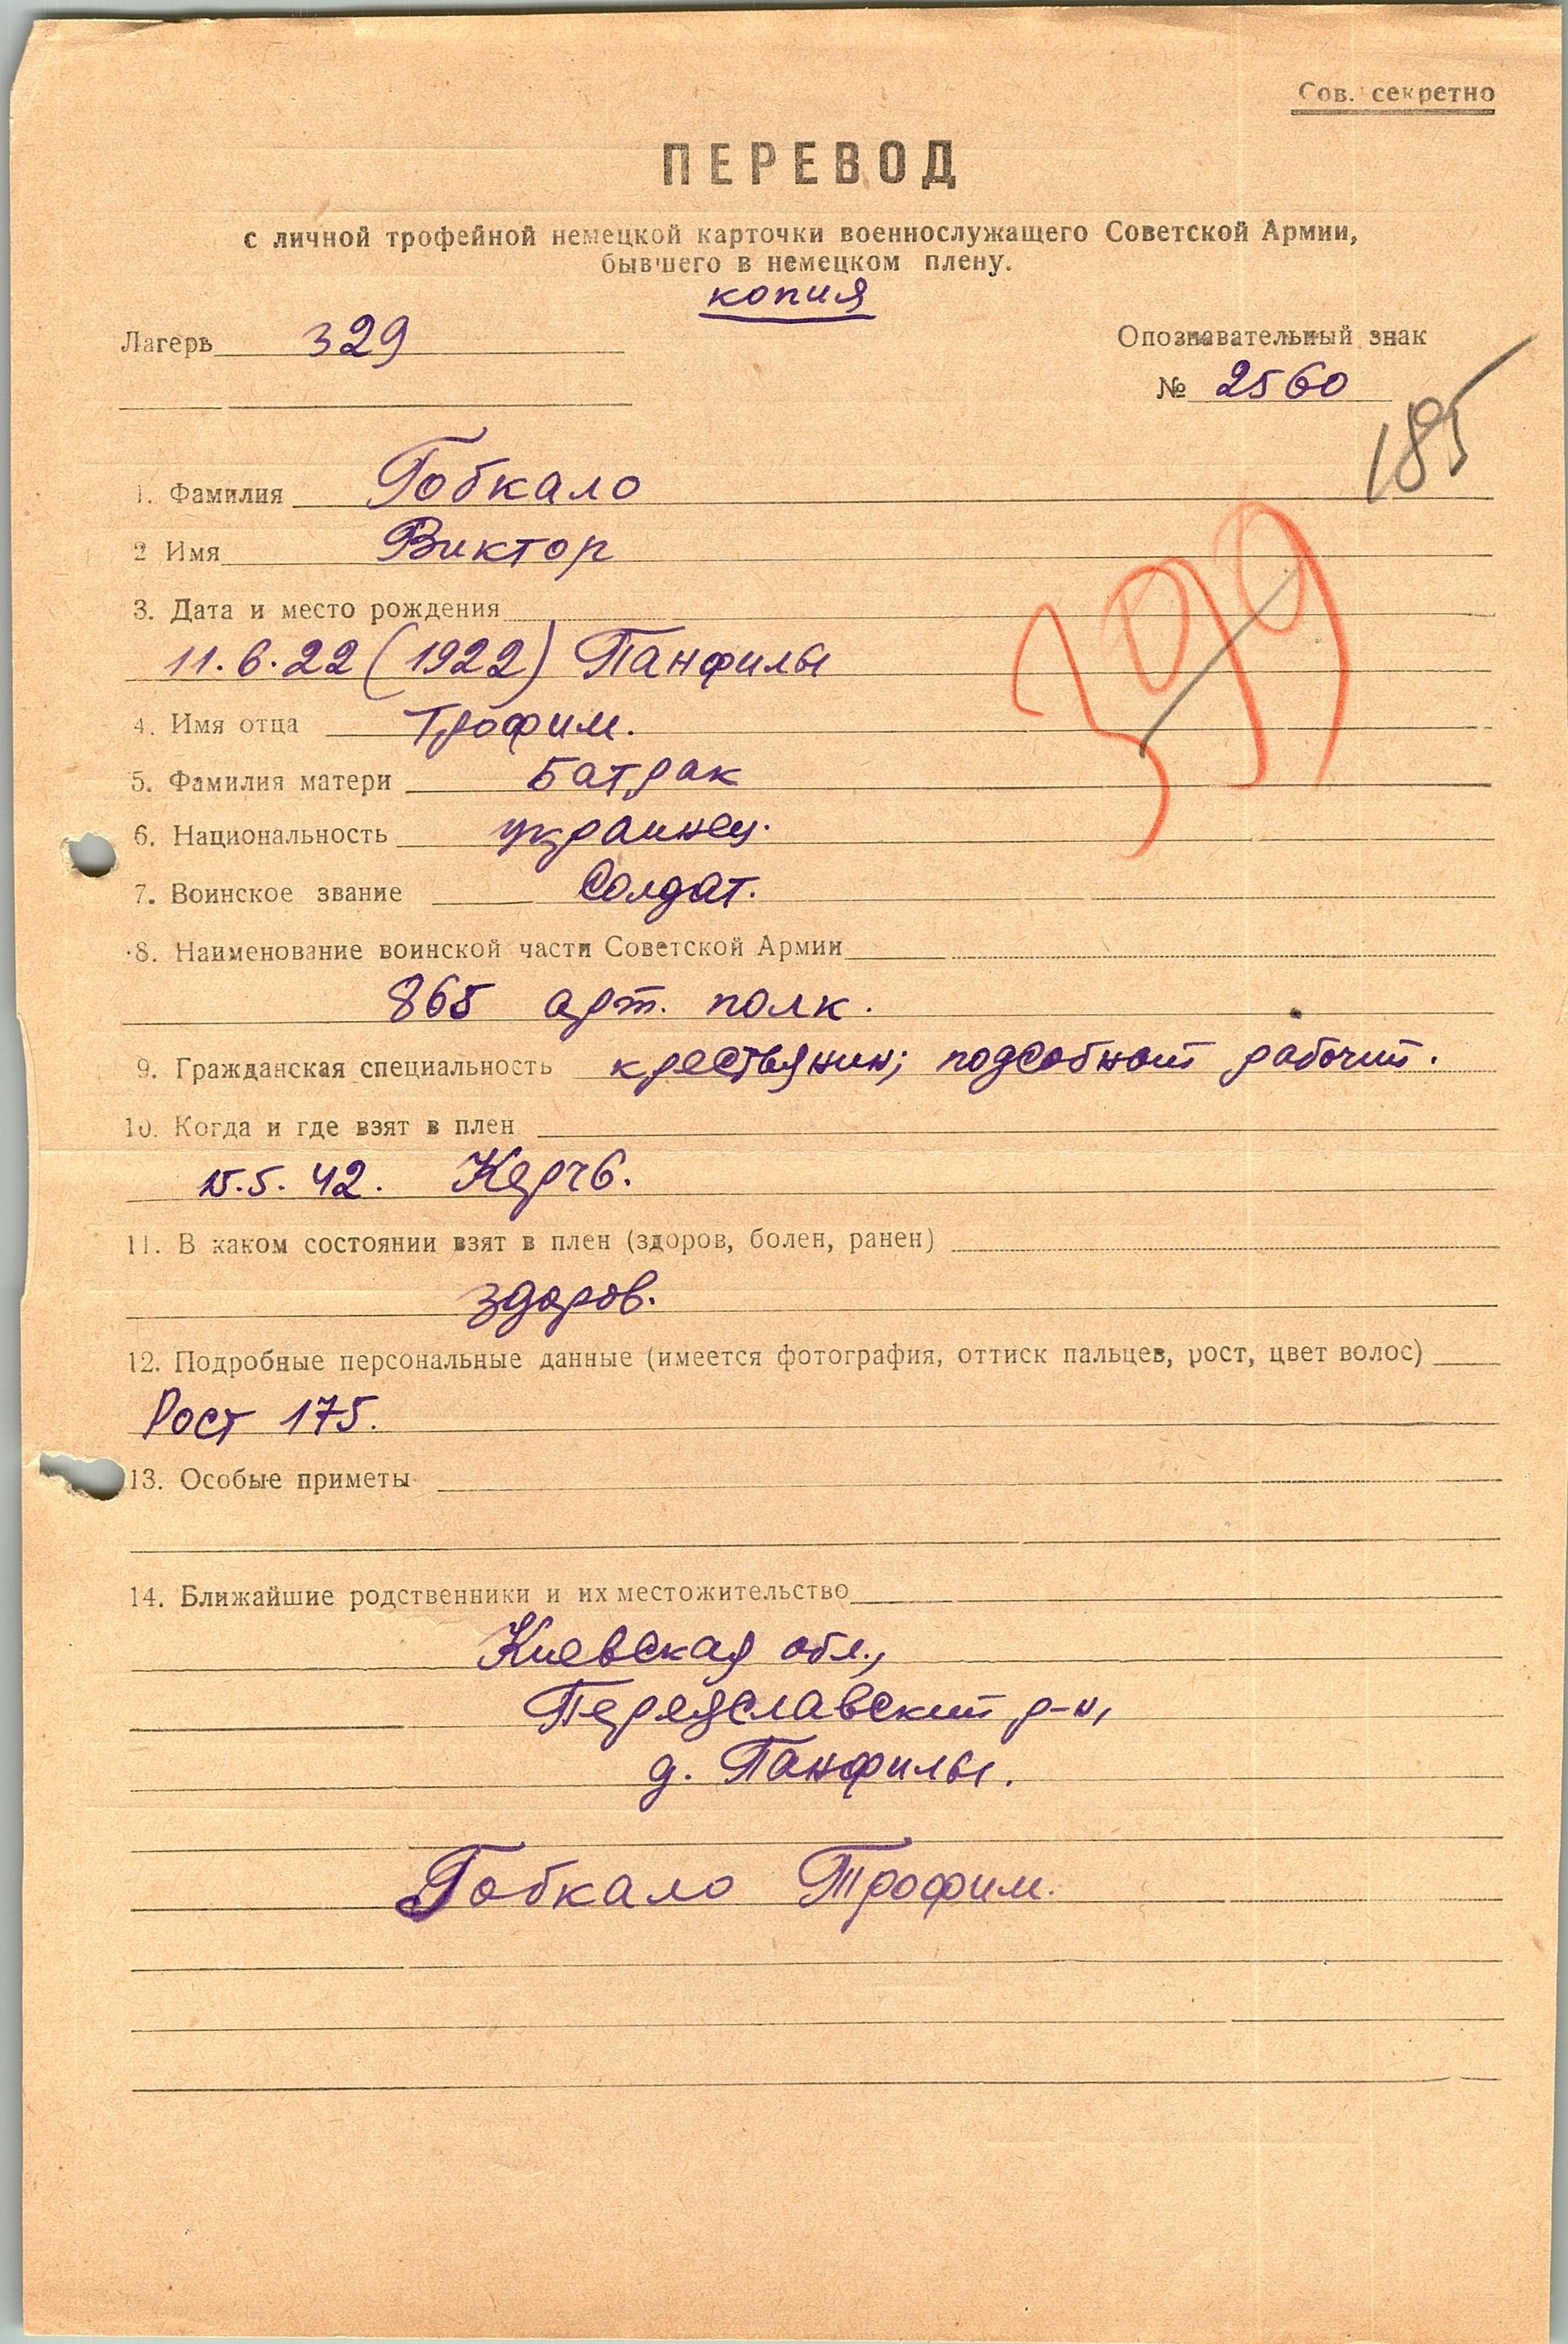 Сов. секретно
ПЕРЕВОД
с личной трофейной немецкой карточки военнослужащего Советской Армии,
бывшего в немецком плену.
копия
Лагерь 329
Опознавательный знак
№ 2560
185
1. Фамилия Гобкало
2 Имя Виктор
399
3. Дата и место рождения
11.6.22 (1922) Панфилы
4. Имя отца Трофим.
5. Фамилия матери Батрак
6. Национальность украинец.
7. Воинское звание Солдат.
8. Наименование воинской части Советской Армии
865 арт. полк.
9. Гражданская специальность крестьянин; подсобный рабочий.
10. Когда и где взят в плен
15.5.42. Керчь.
11. В каком состоянии взят в плен (здоров, болен, ранен)
здоров.
12. Подробные персональные данные (имеется фотография, оттиск пальцев, рост, цвет волос)
Рост 175.
13. Особые приметы
14. Ближайшие родственники и их местожительство
Киевская обл.,
Переяславский р-н,
д. Панфилы.
Гобкало Трофим.